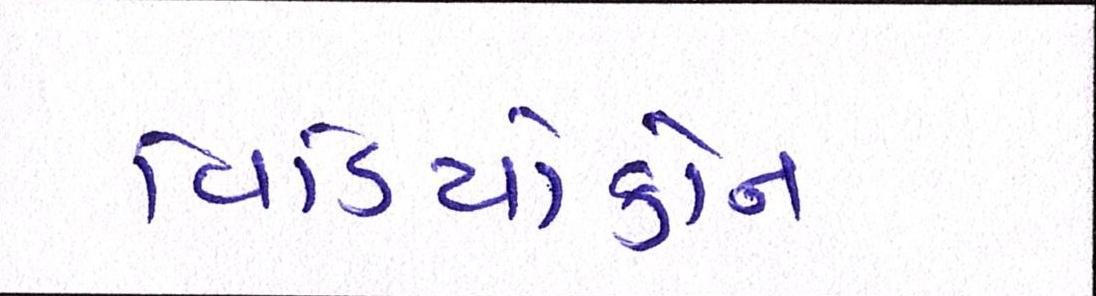 વિડિયોકોન